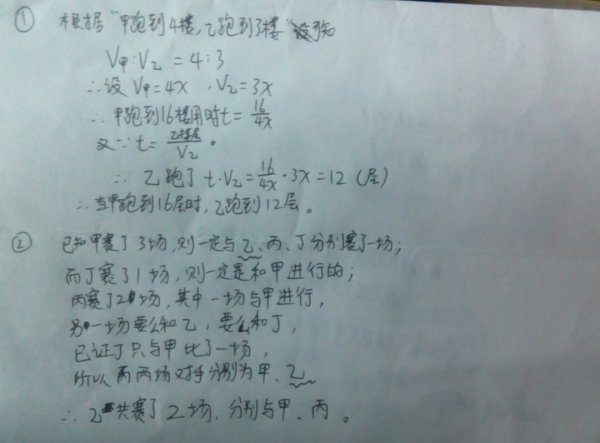 ① 根据“甲跑到4楼,乙跑到3楼”可知
V甲:V乙 = 4:3
∴设 V甲=4x ,V乙=3x
∴甲跑到16楼用时t= 16/4x
又∵ t= 乙楼层/V乙 .
∴ 乙跑了 t·V乙 = 16/4x · 3x = 12 (层)
∴当甲跑到16层时,乙跑到12层。
② 已知甲赛了3场,则一定与乙、丙、丁分别赛了一场;
而丁赛了1场,则一定是和甲进行的;
丙赛了2场,其中一场与甲进行,
另一场要么和乙,要么和丁,
已证丁只与甲比了一场,
所以丙两场对手分别为甲、乙
∴ 乙共赛了2场,分别与甲、丙。